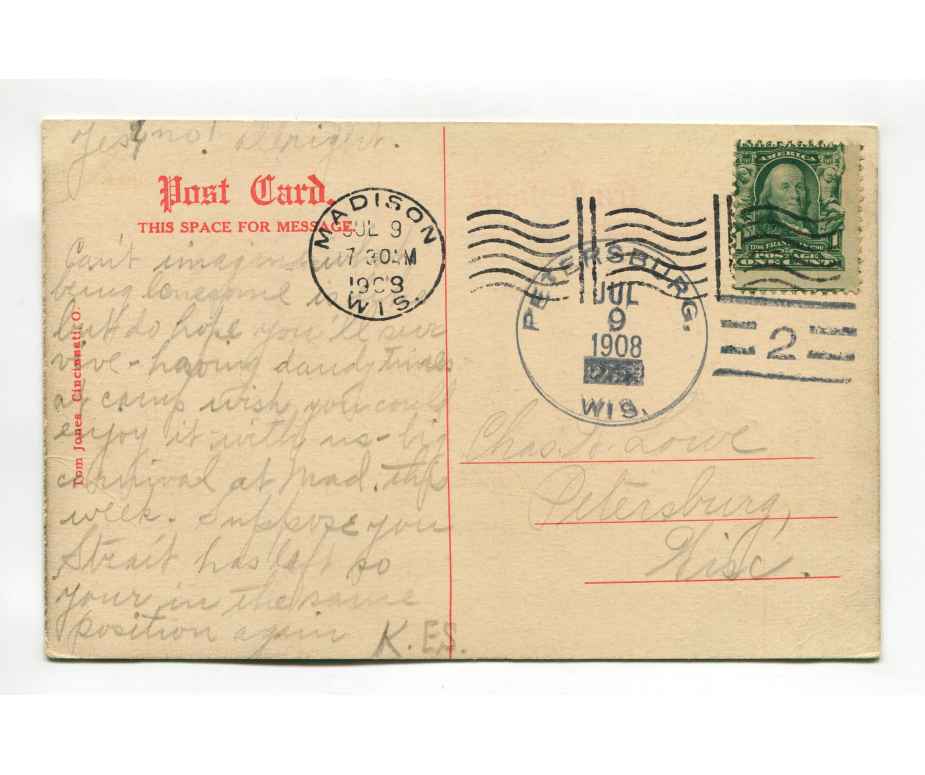 Yes, no! Alright.
Post Card.
THIS SPACE FOR MESSAGE.
Can't imagine
being lonesome
but do hope you'll sur
vive - having dandy times
at camp wish you could
enjoy it with us - big
carnival at Mad. this
week. Suppose you
Strait has left so
your in the same
position again
K. E.S.
Tom Jones, Cincinnati, O.
MADISON
JUL 9
7 30 M
1908
WIS.
PETERSBURG.
JUL
9
1908
WIS.
2
AMERICA
1
POSTAGE
Chas. Lowe
Petersburg,
Wisc.